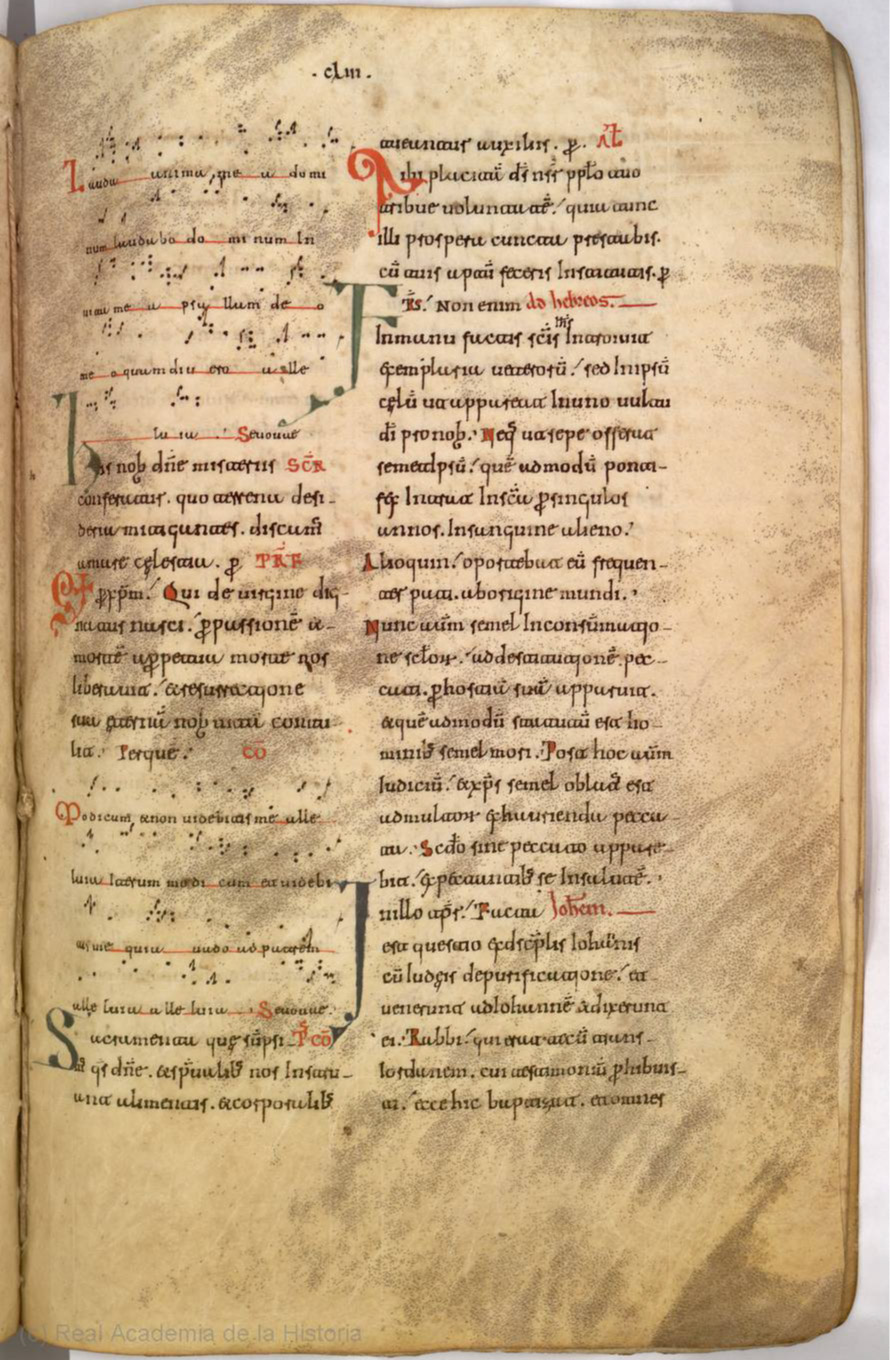 . cliii .
Lauda anima me a domi
num laudabo do mi num In
uita me a psa llam de o
me o quam diu ero a lle
lu ia . Seuouae
His nob dñe misteriis SCR
conferatur. quo terrena desi-
deria mitigantes. discam̄
amare cęlestia. ꝑ PRF
ꝑ xp̄m. Qui de uirgine dig-
natus nasci. ꝑ passionē &
mortē a ꝑpetua morte nos
liberauit. & resurrectione
sua ęternā nob uitā contu-
lit. Per quē. CŌ
Modicum & non uidebitis me alle
luia iterum modi cum et uidebi
tis me quia uado ad patrem
alle luia a lle luia. Seuouae.
Sacramenta quę sūpsi- P̄ CŌ
m̄ qs dñe. & sp̄italib nos Instau-
rent alimentis. & corporalib
tueantur auxiliis. ꝑ. AL
Tibi placitā ds̄ nr̄ pplo tuo
tribue uoluntatē. quia tunc
illi prospera cuncta prestabis.
cū tuis aptā feceris Institutis. ꝑ
FRS. Non enim ad hebreos.
In manu factis scīs ihs Introiuit
exemplaria uerorū. sed In ipsū
cęlū ut appareat Inuno uultu
dī pro nob. Neq ut sepe offerat
semetipsū. quē admodū ponti-
fex Intrat In scā ꝑ singulos
annos. In sanguine alieno.
Alioquin. oportebat eū frequen-
ter pati. ab origine mundi.
Nunc autm̄ semel In consūmatio-
ne sclor. ad destitutionē pec-
cati. ꝑ hostiā suā apparuit.
& quē admodū statutū est ho-
minib semel mori. Post hoc autm̄
Iudiciū. & xp̄s semel oblat est
ad multor exhaurienda pecca-
ta. Scdo sine peccato appare-
bit. expectantib se In salutē.
In illo tp̄r. Facta Iohem.
est questio ex discip̄lis Iohannis
cū Iudęis de purificatione. et
uenerunt ad Iohannē & dixerunt
ei. Rabbi. qui erat tecū trans-
Iordanem. cui testimoniū ꝑhibuis-
ti. ecce hic baptizat. et omnes
(c) Real Academia de la Historia